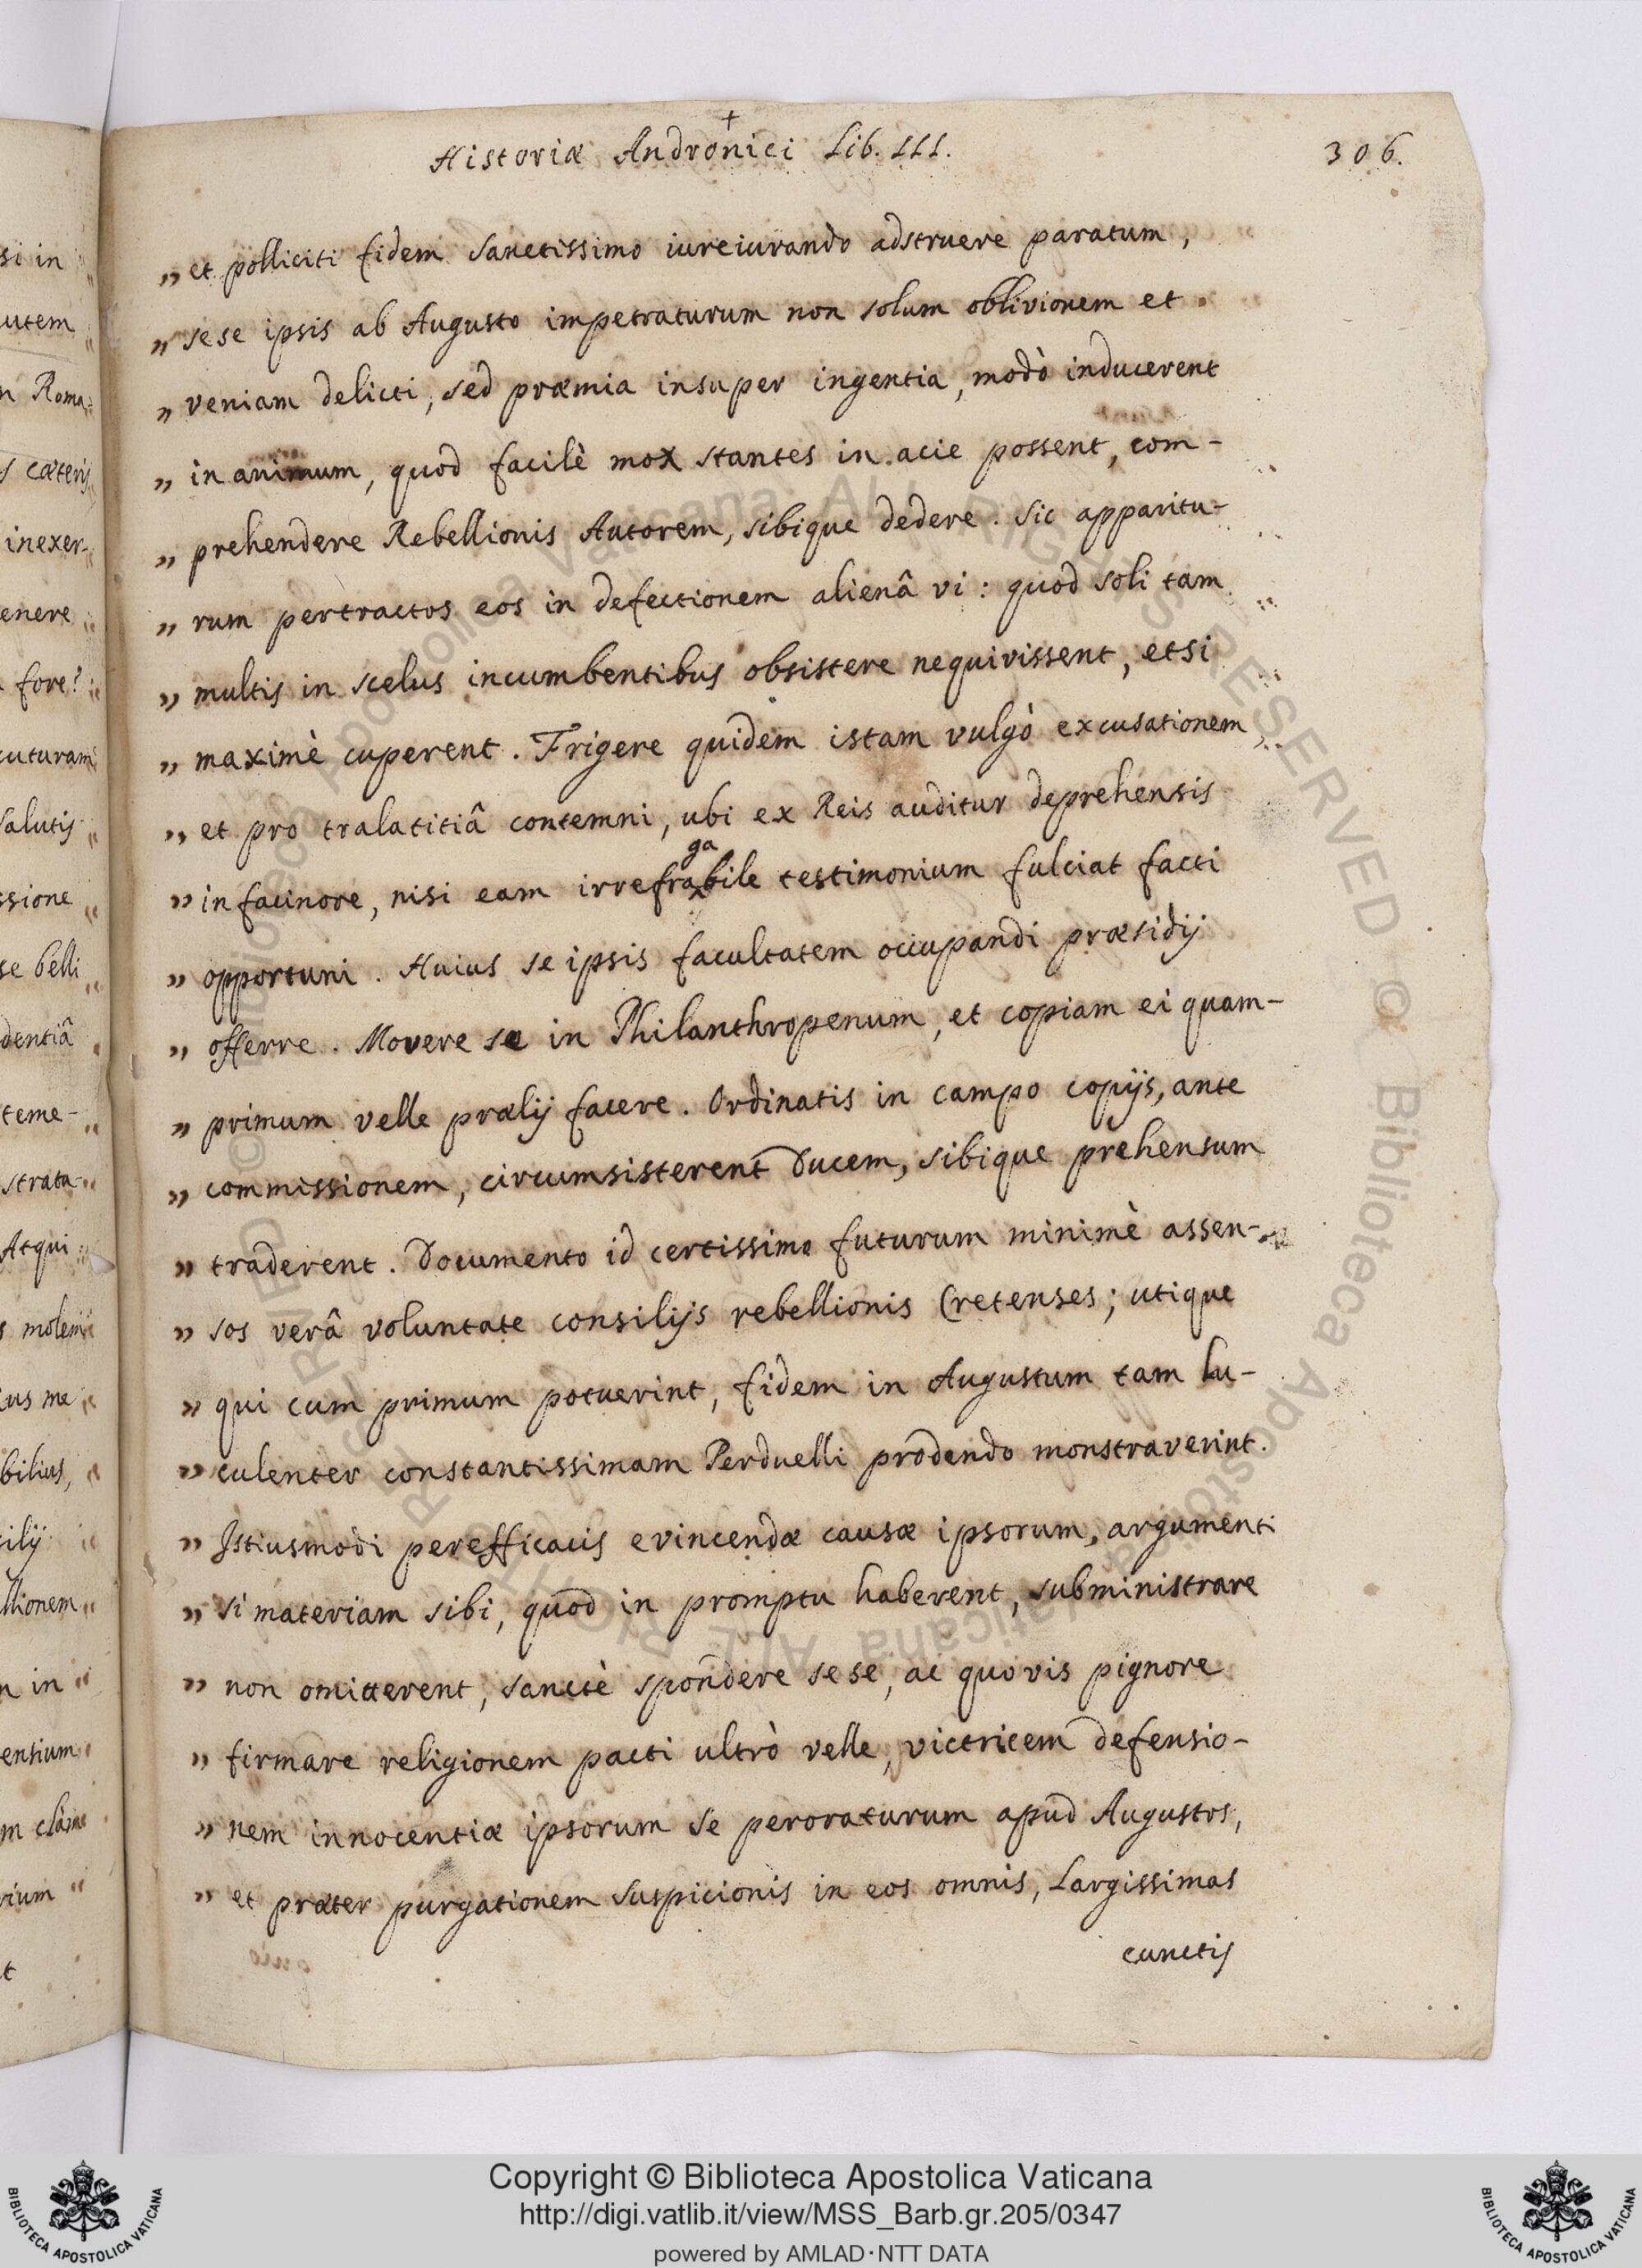 +
Historiæ Andronici Lib. III.
306.
„ et polliciti fidem sanctissimo iureiurando adstruere paratum,
„ sese ipsis ab Augusto impetraturum non solum oblivionem et
„ veniam delicti, sed præmia insuper ingentia, modò inducerent
„ in animum, quod facilè mox stantes in acie possent, com-
„ prehendere Rebellionis Autorem, sibique dedere. Sic apparitu-
„ rum pertractos eos in defectionem alienâ vi: quod soli tam
„ multis in scelus incumbentibus obsistere nequivissent, etsi
„ maximè cuperent. Frigere quidem istam vulgò excusationem,
„ et pro tralatitiâ contemni, ubi ex Reis auditur deprehensis
ga
„ in facinore, nisi eam irrefrabile testimonium fulciat facti
„ opportuni. Huius se ipsis facultatem occupandi præsidij
„ offerre. Movere se in Philanthropenum, et copiam ei quam-
„ primum velle prælij facere. Ordinatis in campo copijs, ante
„ commissionem, circumsisterent Ducem, sibique prehensum
„ traderent. Documento id certissimo futurum minimè assen-
„ sos verâ voluntate consilijs rebellionis Cretenses; utique
„ qui cum primum potuerint, fidem in Augustum tam lu-
„ culenter constantissimam Perduelli prodendo monstraverint.
„ Istiusmodi perefficacis evincendæ causæ ipsorum, argumenti
„ si materiam sibi, quod in promptu haberent, subministrare
„ non omitterent, sanctè spondere sese, ac quovis pignore
„ firmare religionem pacti ultrò velle, victricem defensio-
„ nem innocentiæ ipsorum se peroraturum apud Augustos,
„ et præter purgationem suspicionis in eos omnis, largissimas
cunctis
si in
utem
n Roma
s cæteris
inexer-
enere
fore?
cuturam
salutis
ssione
se belli
dentiâ
teme-
strata
Atqui
s molem
ius me
bilius,
silij
llionem
n in
ensium
m clàm
rium
t
Copyright © Biblioteca Apostolica Vaticana
http://digi.vatlib.it/view/MSS_Barb.gr.205/0347
powered by AMLAD·NTT DATA
BIBLIOTECA APOSTOLICA VATICANA
BIBLIOTECA APOSTOLICA VATICANA
© Biblioteca Apostolica Vaticana ALL RIGHTS RESERVED © Biblioteca Apostolica Vaticana ALL RIGHTS RESERVED